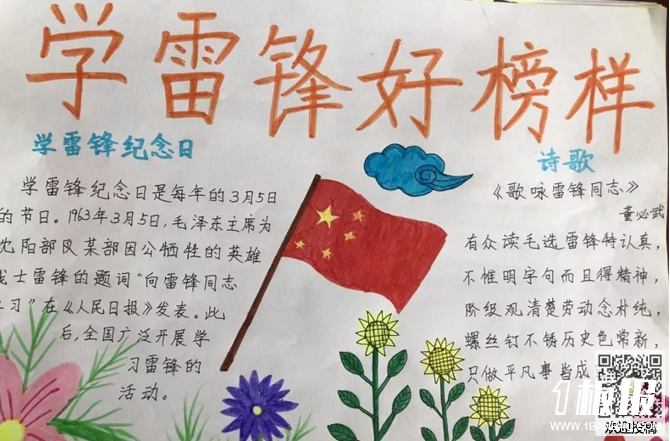 学雷锋好榜样
学雷锋纪念日
学雷锋纪念日是每年的3月5日
的节日。1963年3月5日,毛泽东主席为
沈阳部队某部因公牺牲的英雄
战士雷锋的题词“向雷锋同志
学习”在《人民日报》发表。此
后,全国广泛开展学
习雷锋的
活动。
诗歌
《歌咏雷锋同志》
董必武
有众读毛选雷锋特认真,
不惟明字句而且得精神,
阶级观清楚劳动念朴纯,
螺丝钉不锈历史色常新,
只做平凡事皆成